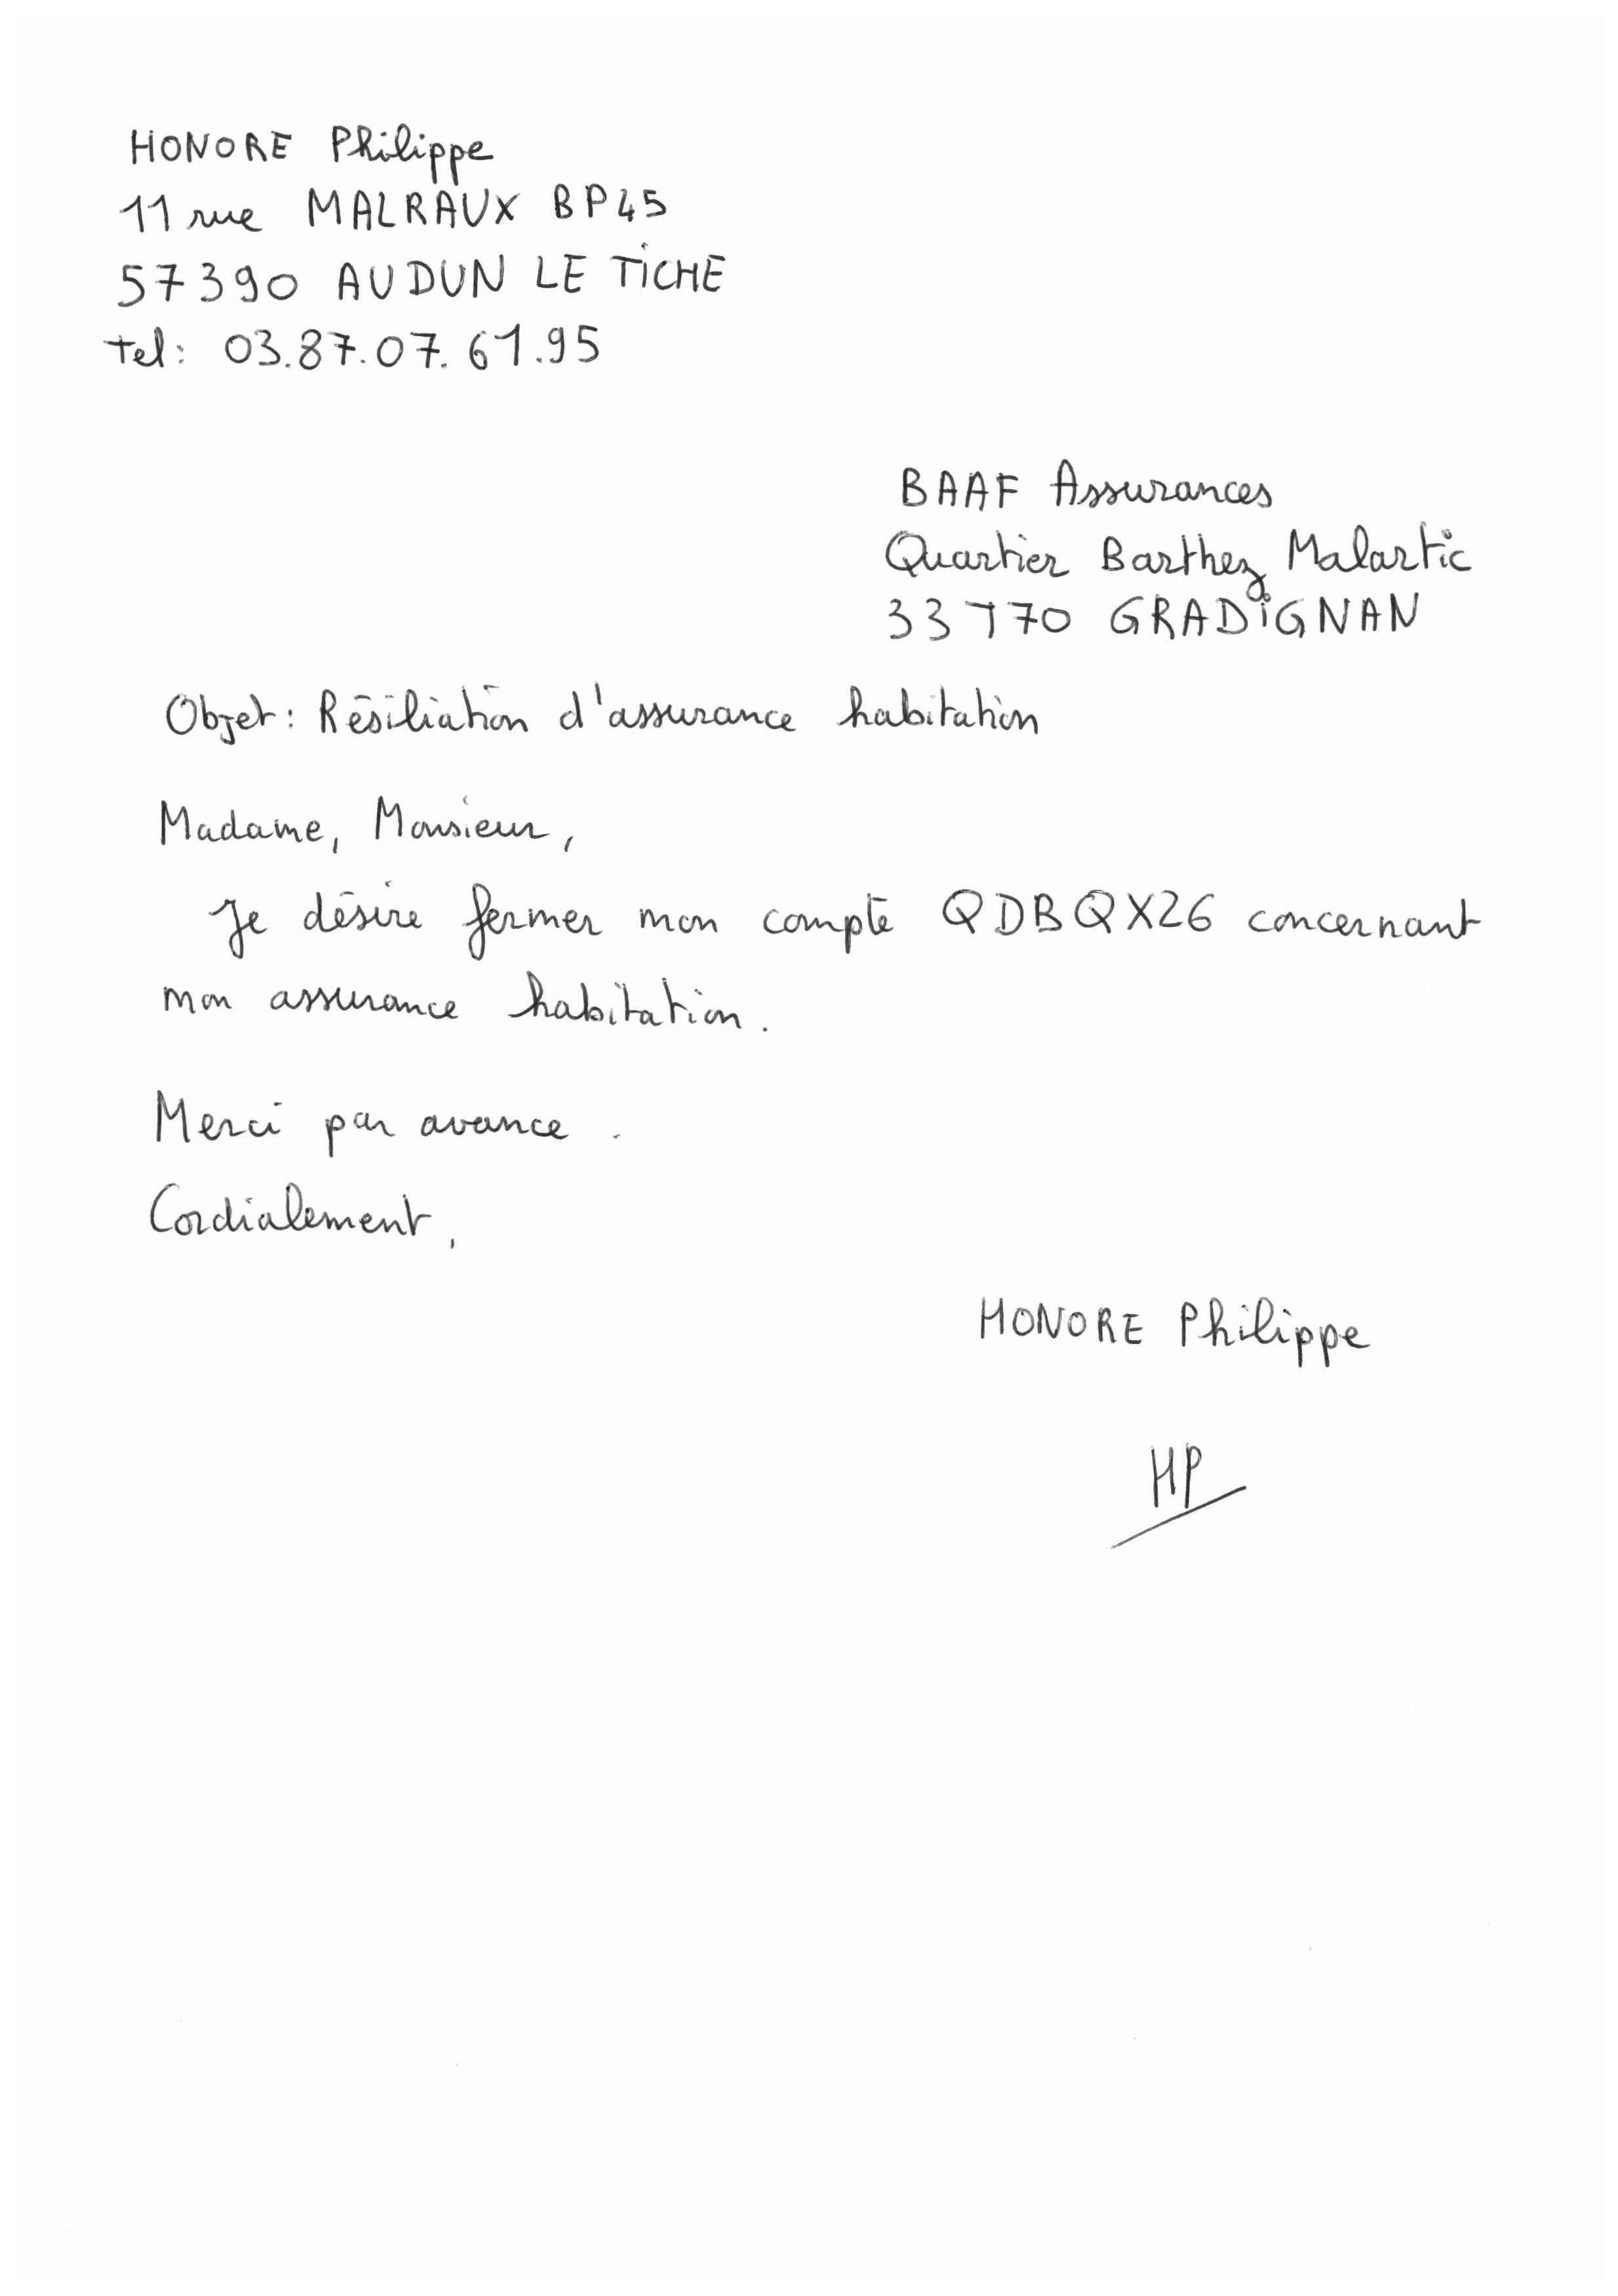 HONORE Philippe
11 rue MALRAUX BP45
57390 AUDUN LE TICHE
tel: 03.87.07.61.95
BAAF Assurances
Quartier Barthez Malartic
33170 GRADIGNAN
Objet: Résiliation d'assurance habitation
Madame, Monsieur,
Je désire fermer mon compte QDBQX26 concernant
mon assurance habitation.
Merci par avance.
Cordialement,
HONORE Philippe
HP